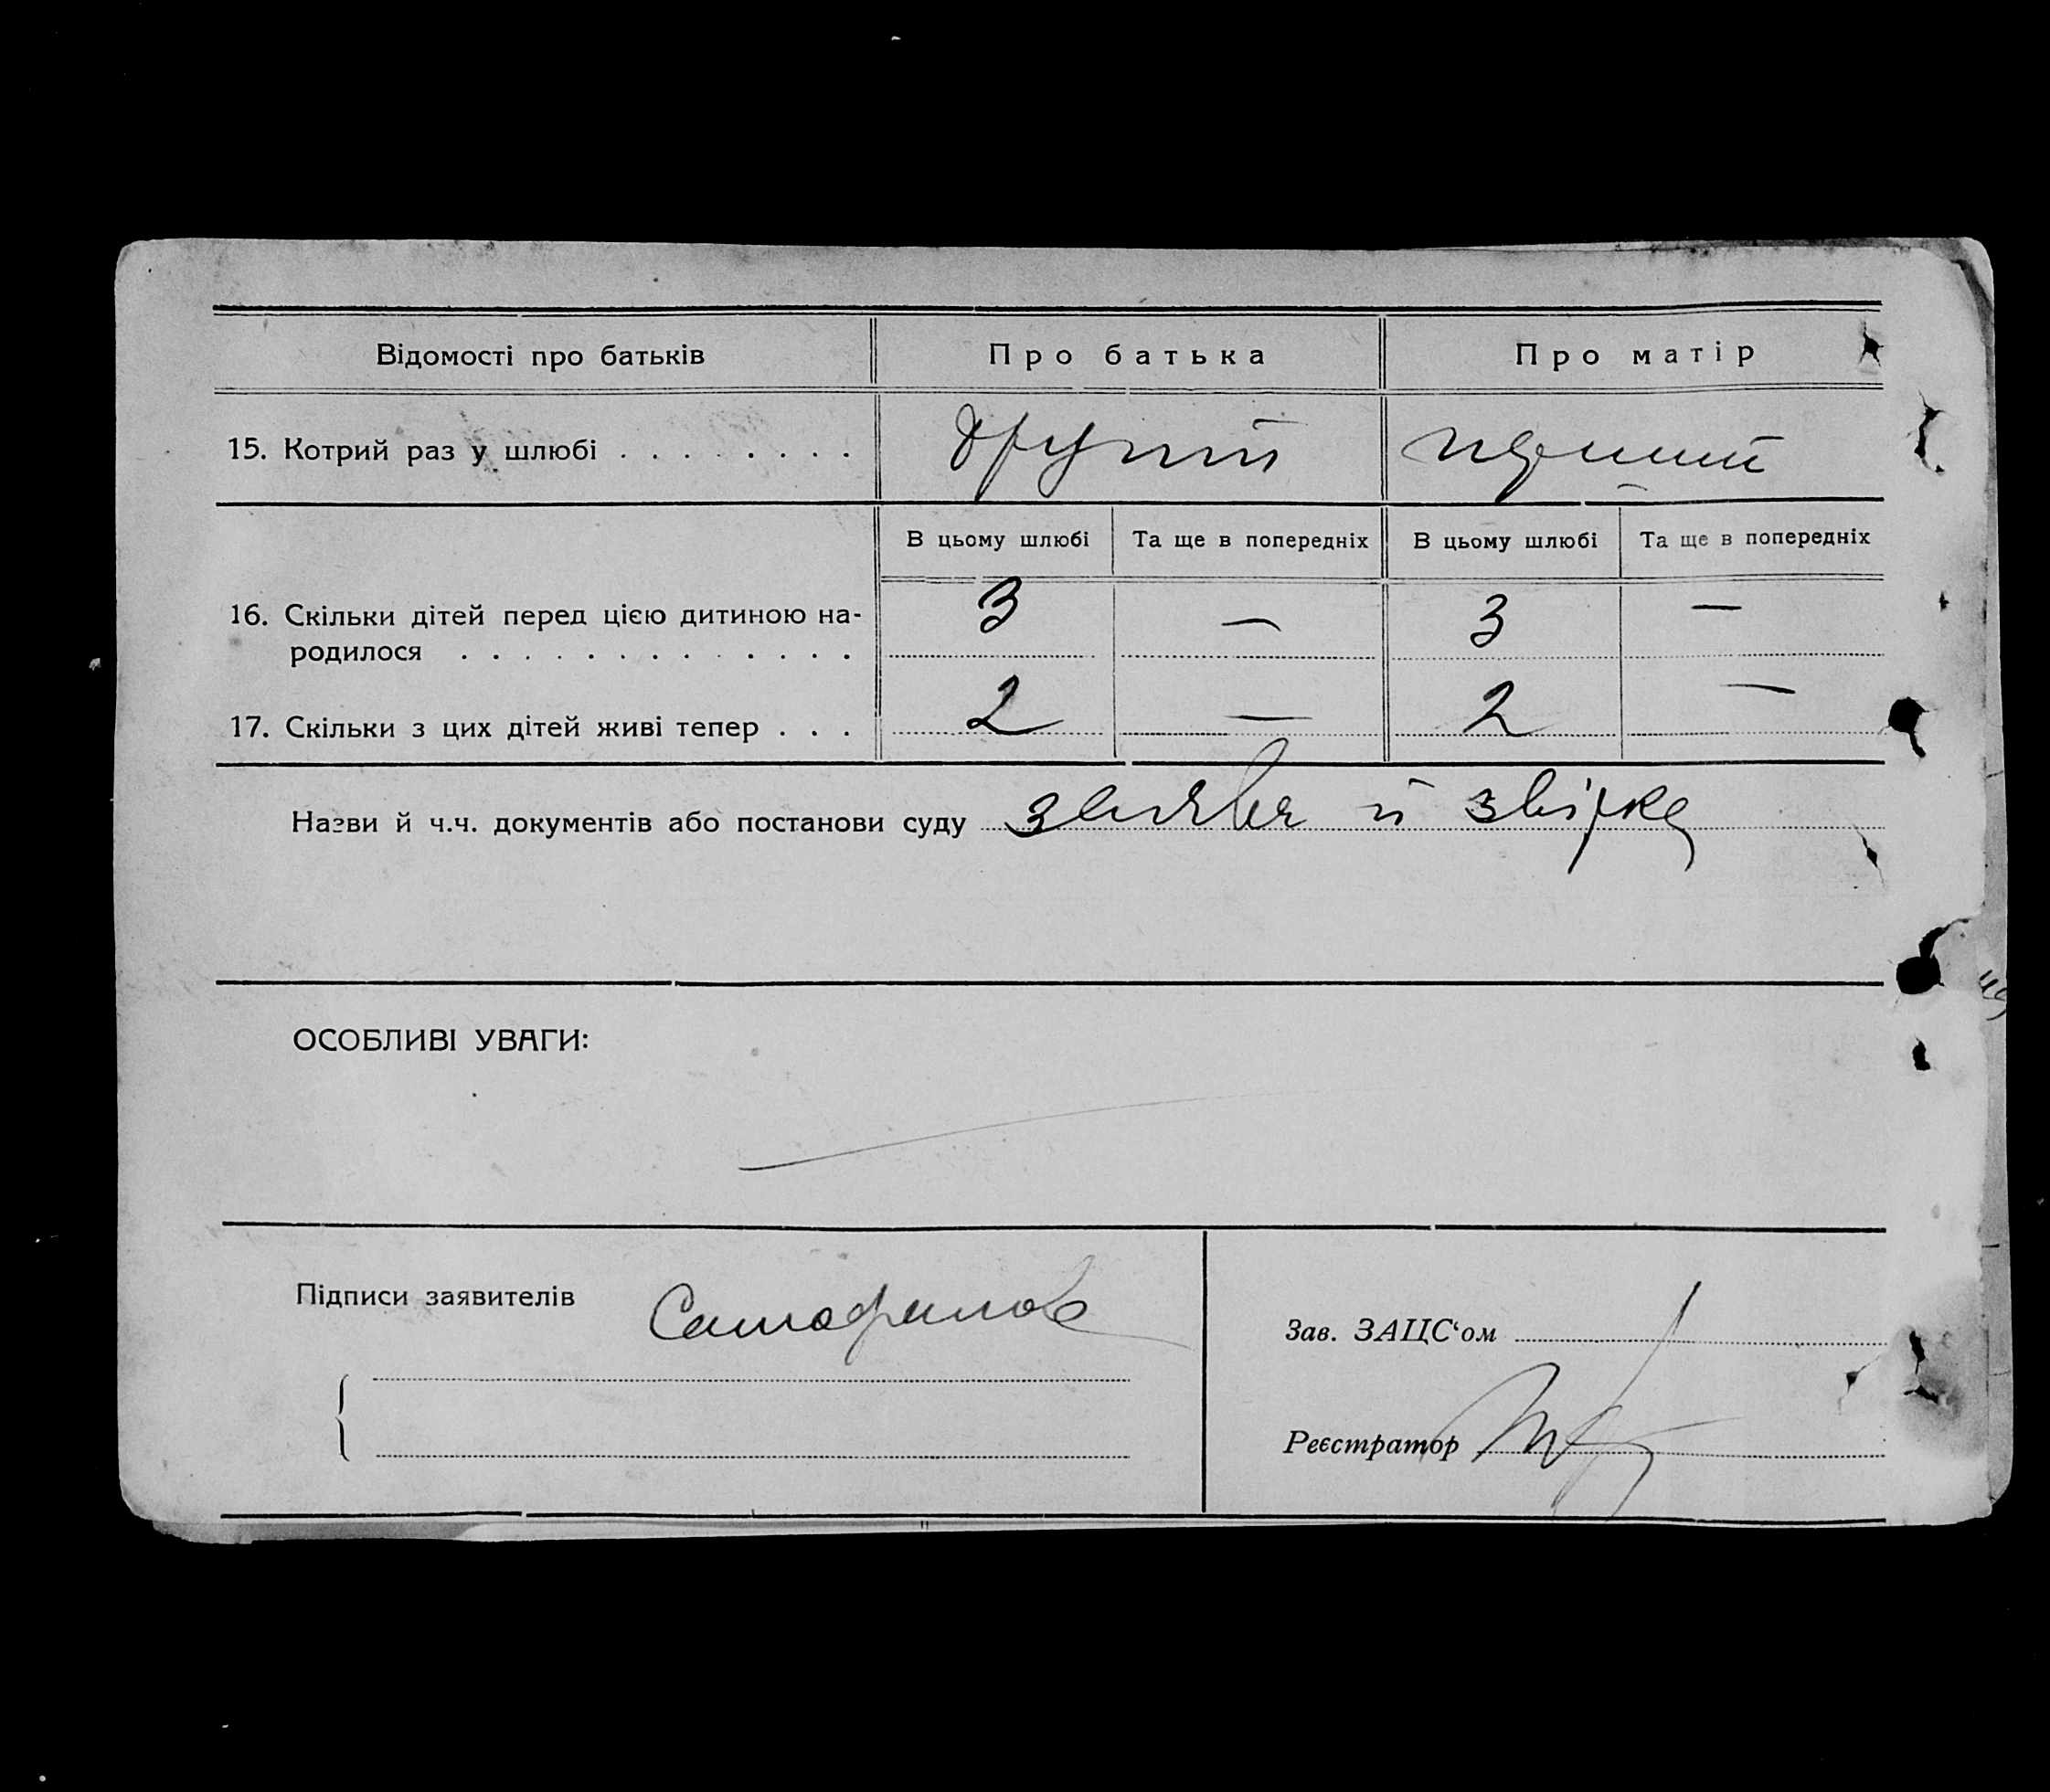 Відомості про батьків Про батька Про матір
15. Котрий раз у шлюбі . . . . . . . . другий перший
В цьому шлюбі Та ще в попередніх В цьому шлюбі Та ще в попередніх
16. Скільки дітей перед цією дитиною на- 3 — 3 —
родилося . . . . . . . . . . . . .
17. Скільки з цих дітей живі тепер . . . 2 — 2 —
Назви й ч.ч. документів або постанови суду заява й звірка
ОСОБЛИВІ УВАГИ:
Підписи заявителів
Зав. ЗАЦС‘ом
Реєстратор